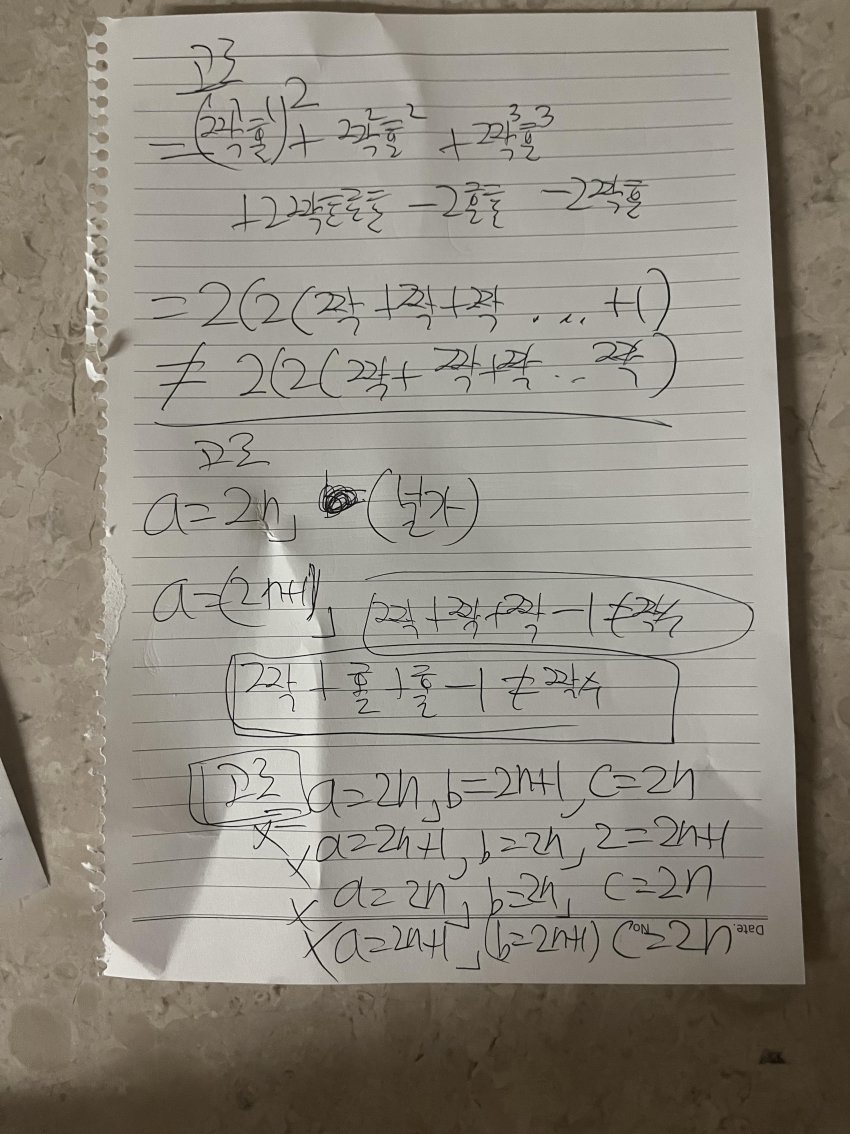 고로
= (짝홀)² + 짝²홀² + 짝³홀³
+2짝홀홀홀 -2홀홀 -2짝홀
= 2(2(짝+짝+짝 ... +1)
≠ 2(2(짝+짝+짝...짝)
고로
a=2n, (불가)
a=(2n+1), 짝+짝+짝-1≠짝수
짝+홀+홀-1≠짝수
고로 a=2n, b=2n+1, c=2n
x a=2n+1, b=2n, 2=2n+1
x a=2n, b=2n, c=2n
x a=2n+1, (b=2n+1) c=2n
Date. No.